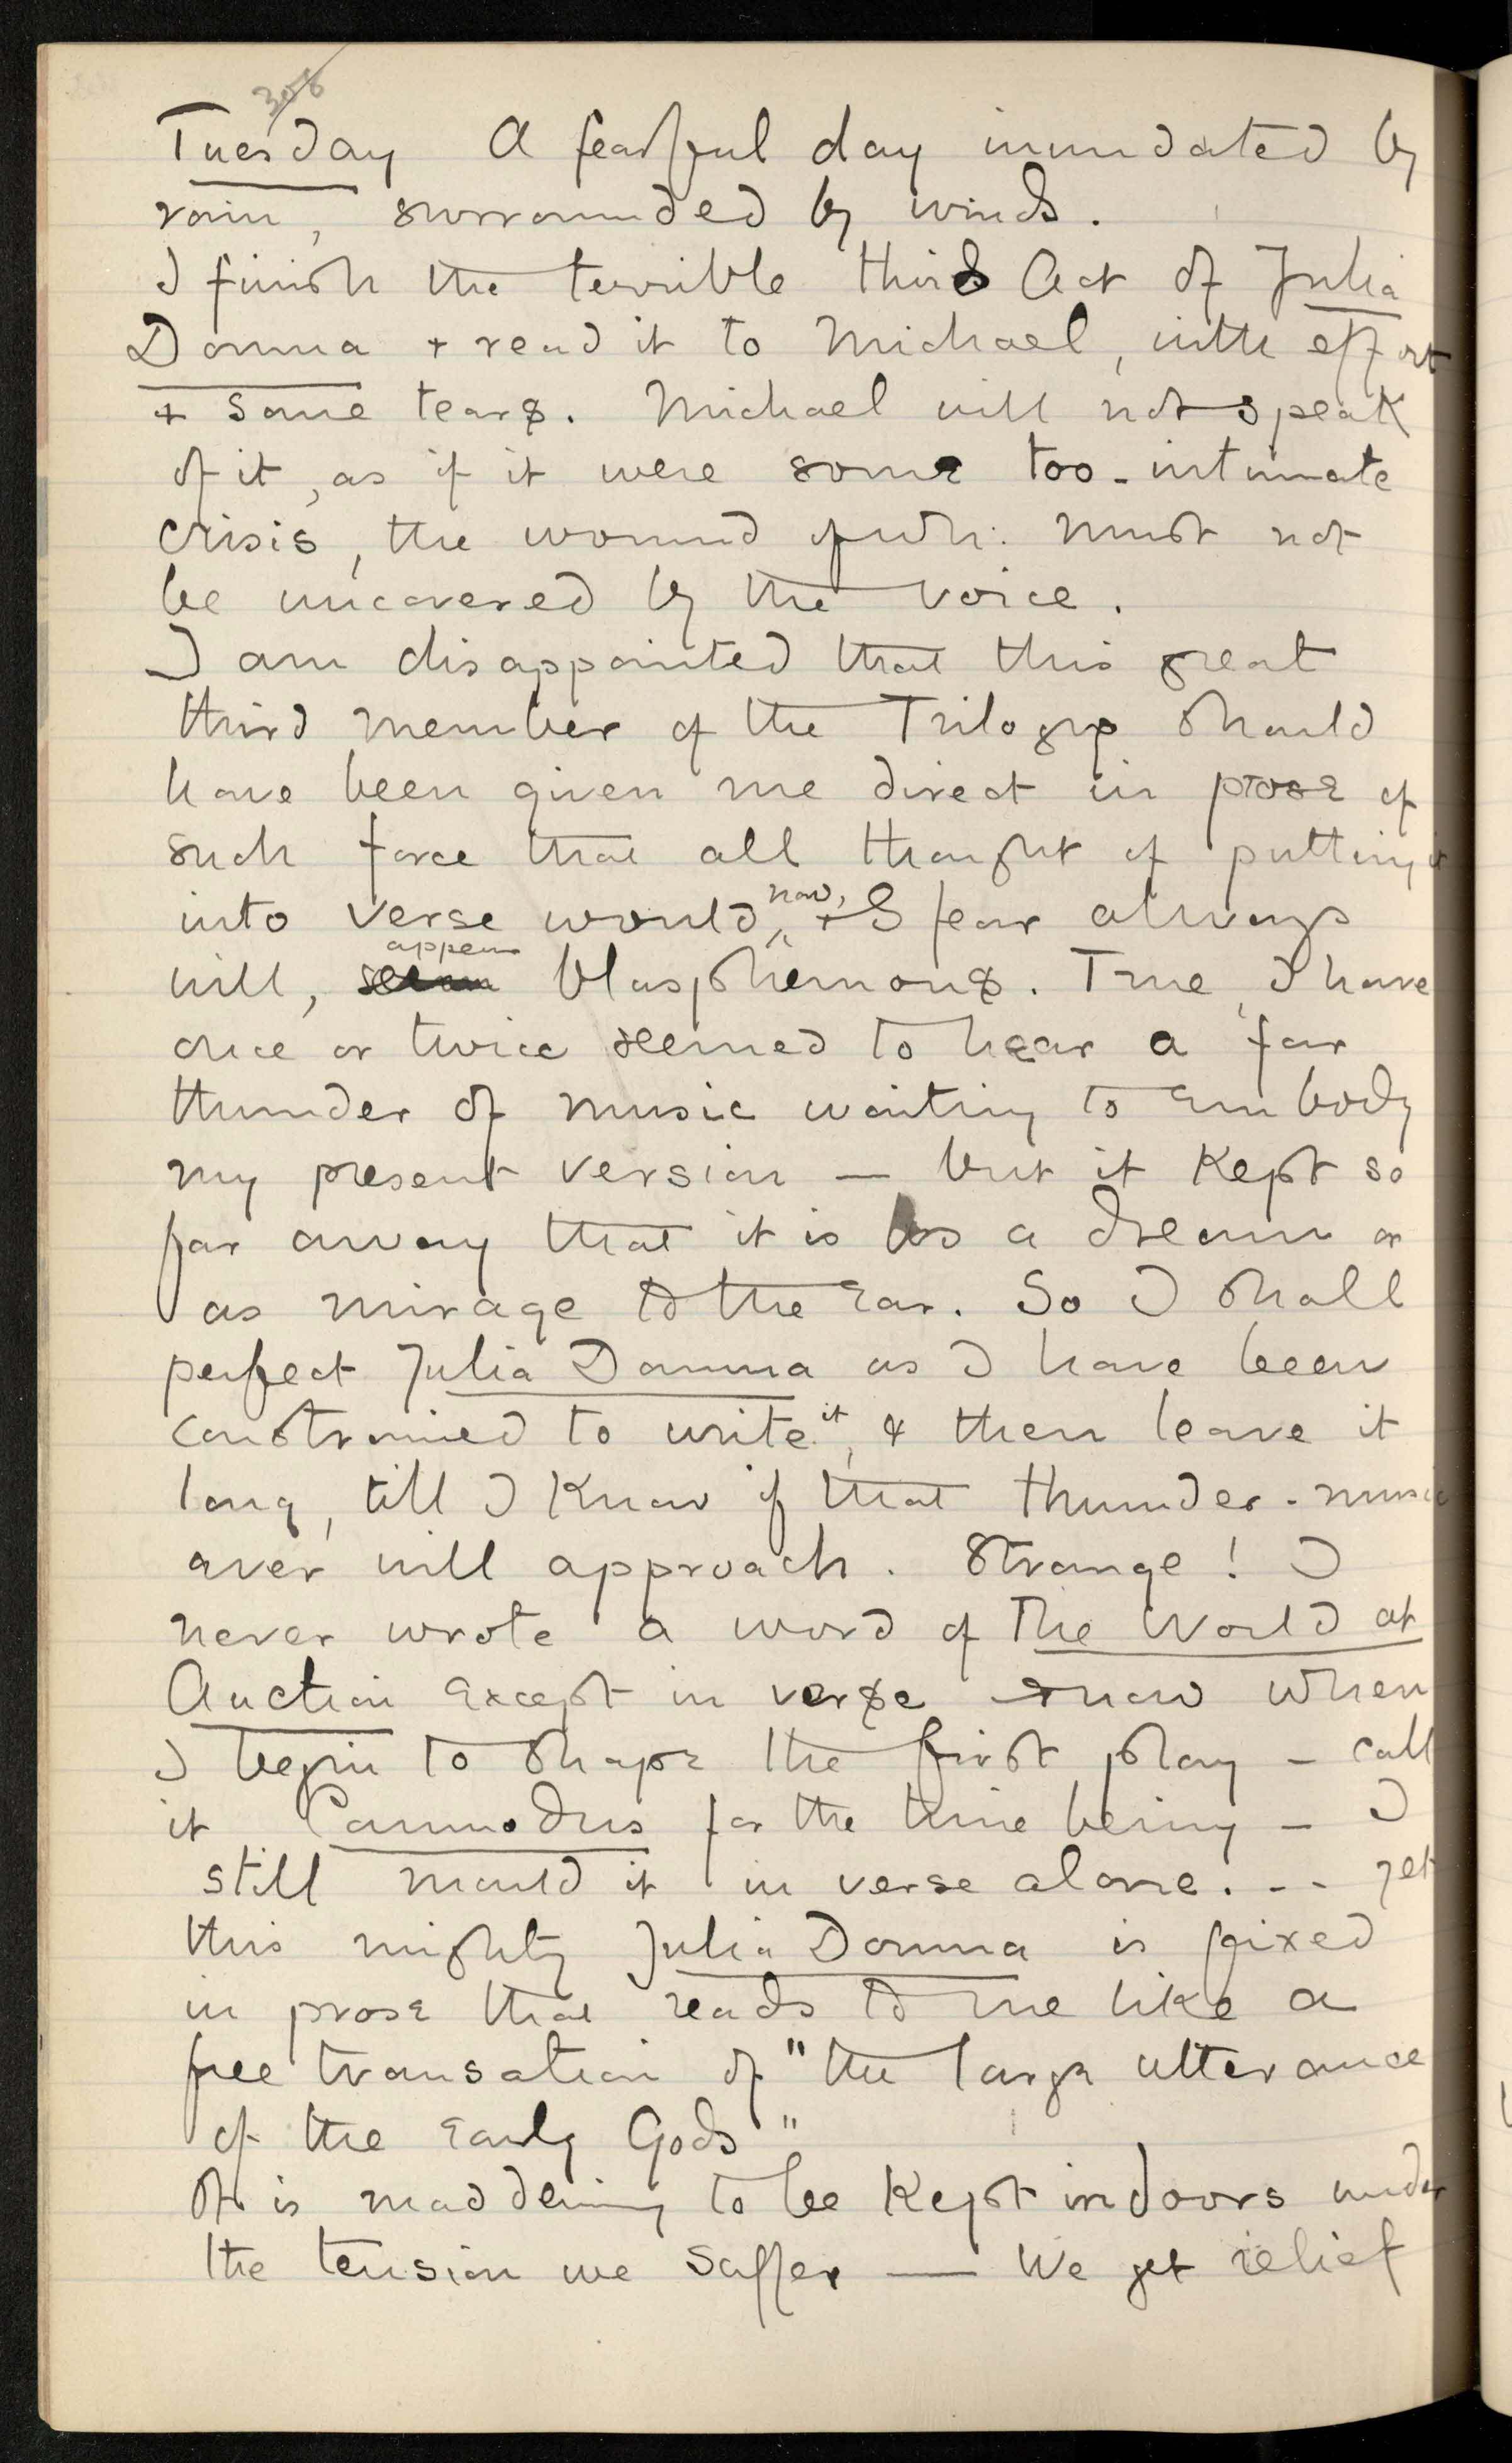 306
Tuesday A fearful day inundated by
rain, surrounded by winds.
I finish the terrible third Act of Julia
Domna + read it to Michael, with effort
+ some tears. Michael will not speak
of it, as if it were some too-intimate
crisis, the wound of wh: must not
be uncovered by the voice.
I am disappointed that this great
third member of the Trilogy should
have been given me direct in prose of
such force that all thought of putting it
into verse would, now, + I fear always
will, seem appear blasphemous. True, I have
once or twice seemed to hear a far
thunder of music waiting to embody
my present version — but it kept so
far away that it is as a dream or
as mirage to the ear. So I shall
perfect Julia Domna as I have been
constrained to write it, & then leave it
long, till I know if that thunder-music
ever will approach. Strange! I
never wrote a word of The World at
Auction except in verse + now when
I begin to shape the first play – call
it Commodus for the time being – I
still mould it in verse alone. - - yet
this mighty Julia Domna is fixed
in prose that reads to me like a
free transation of "the large utterance
of the early Gods"
It is maddening to be kept indoors under
the tension we suffer — We get relief